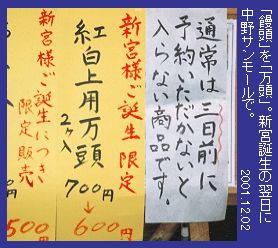 「饅頭」を「万頭」。新宮誕生の翌日に
中野サンモールで。
2001.12.02
通常は三日前に
予約いただかないと
入らない商品です。
新宮様ご誕生 限定
紅白上用万頭
2ヶ入
700円→600円
新宮様ご誕生につき
限定販売
500円